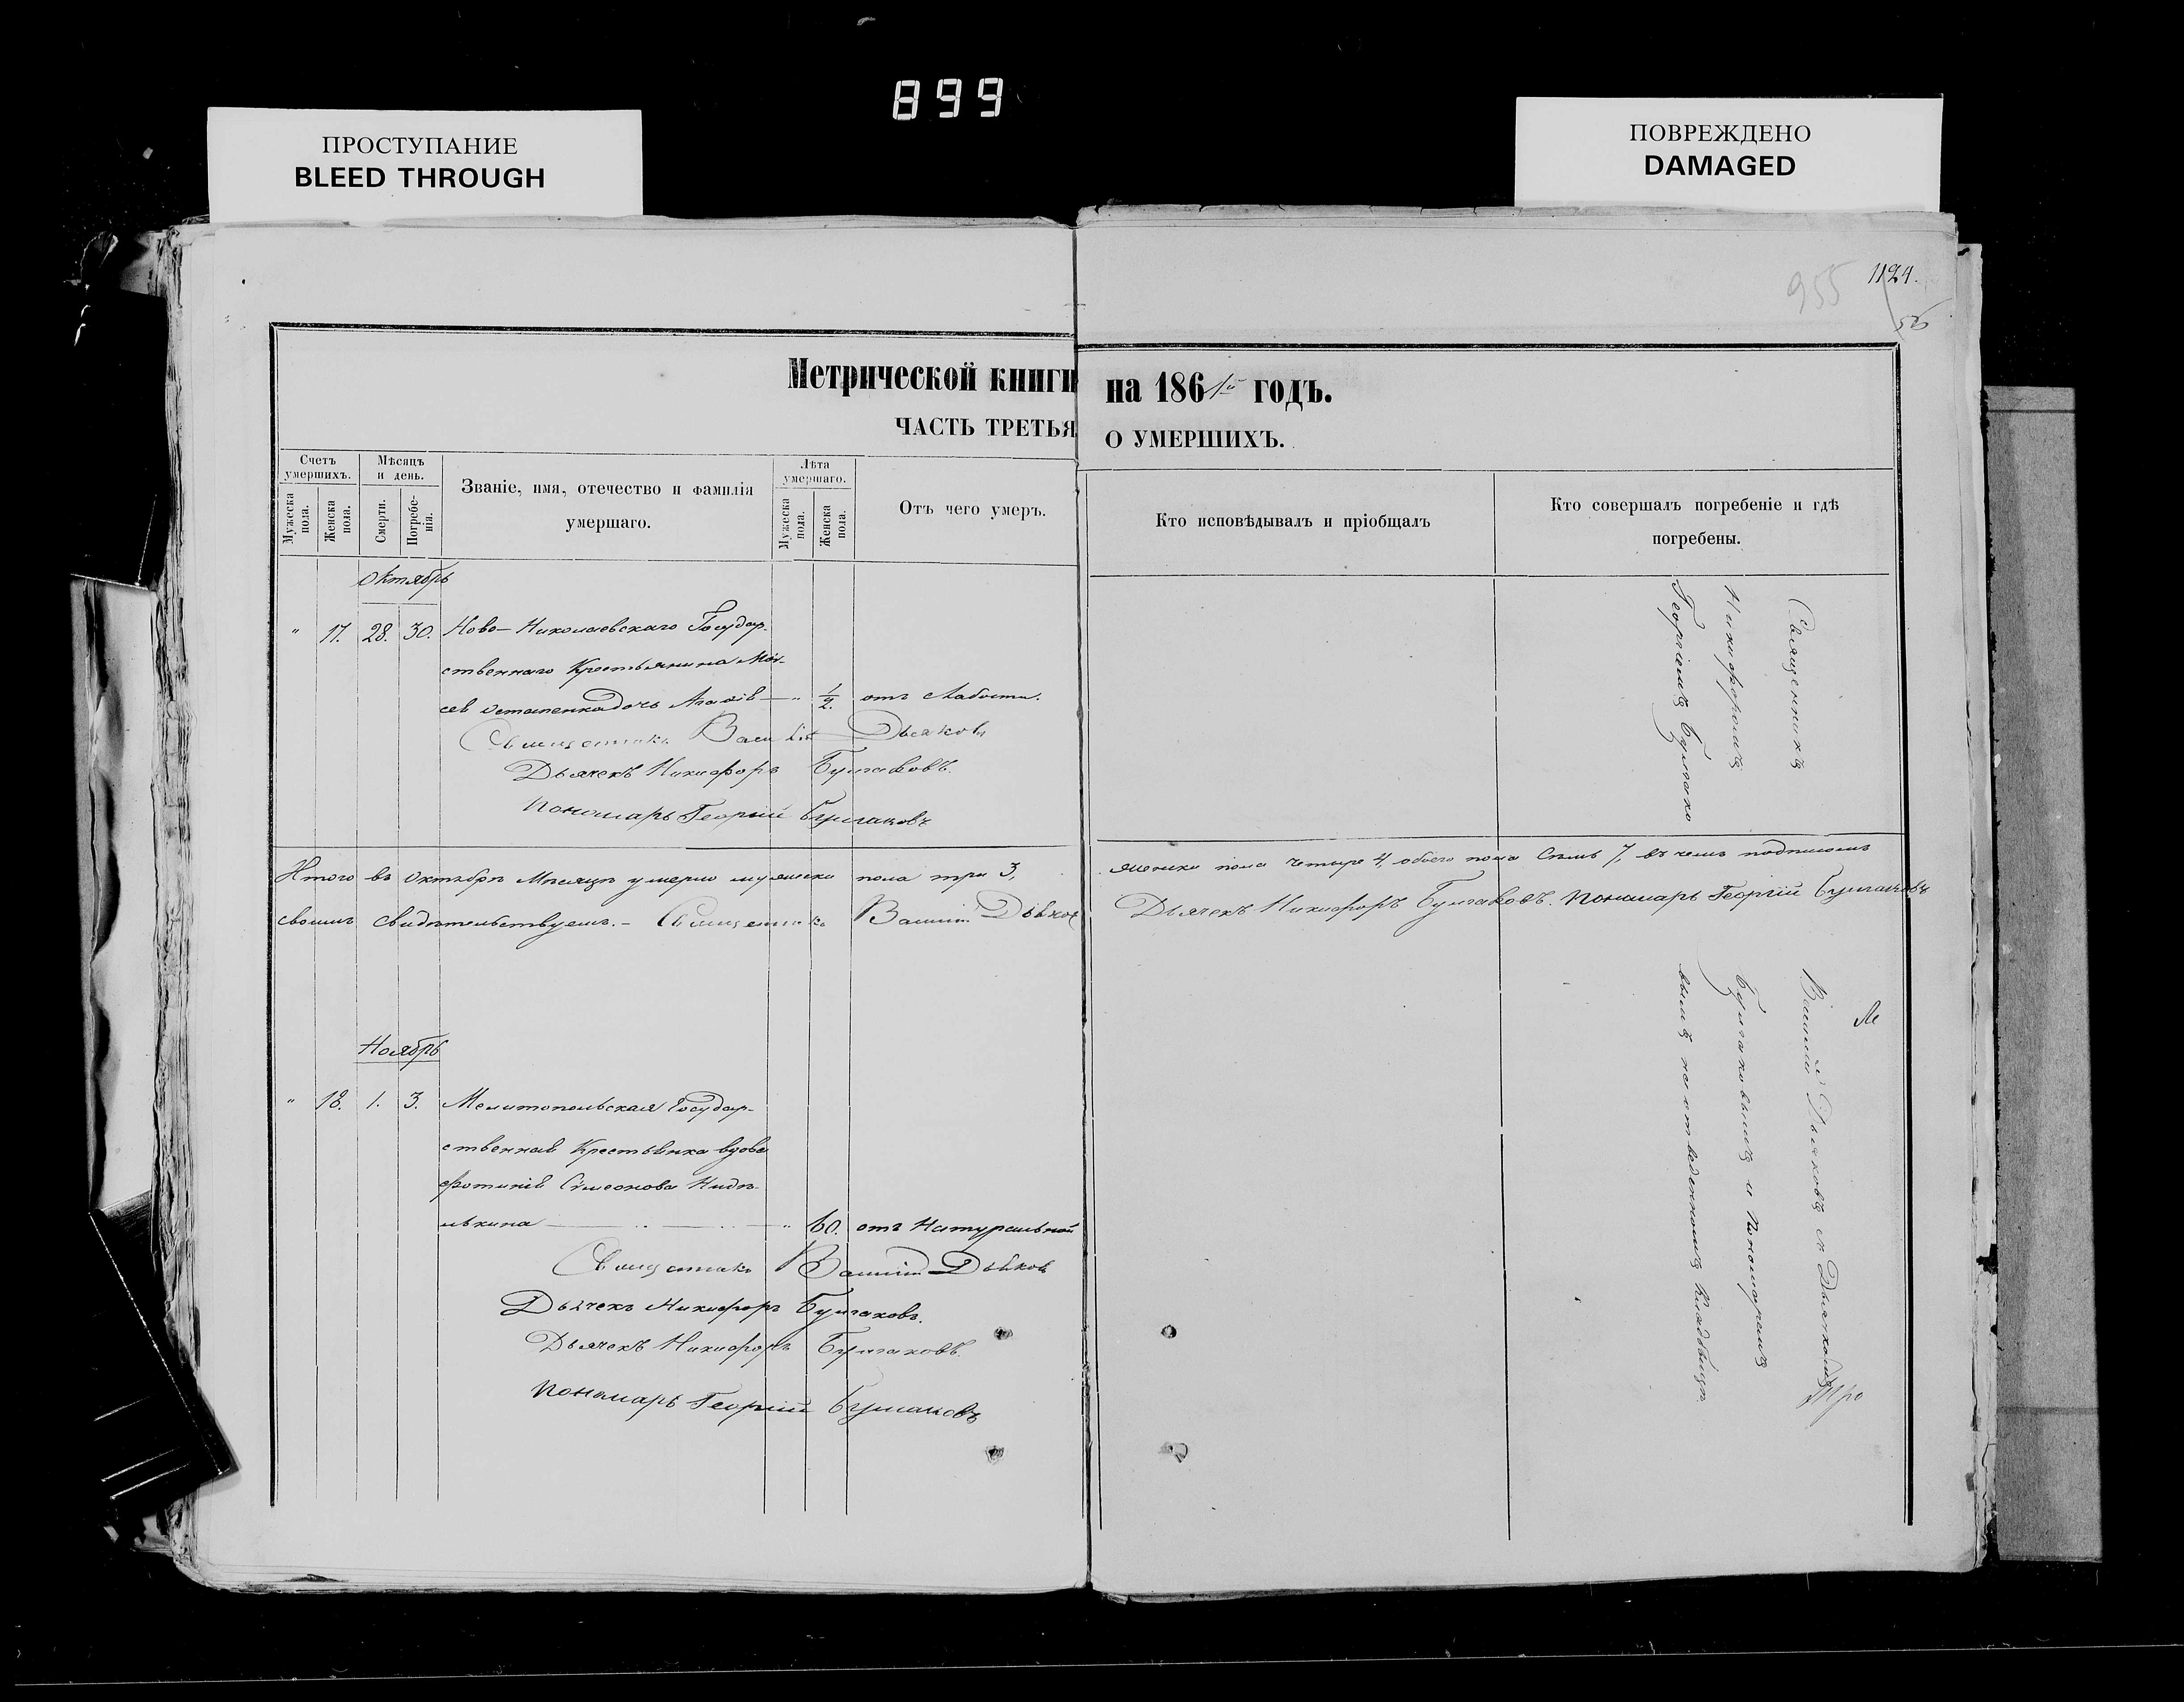 899
ПРОСТУПАНИЕ
BLEED THROUGH
ПОВРЕЖДЕНО
DAMAGED
955 1124.
56
Метрической книги на 1861й годъ.
ЧАСТЬ ТРЕТЬЯ О УМЕРШИХЪ.
Счетъ умершихъ.
Мужеска пола.
Женска пола.
Мѣсяцъ и день.
Смерти.
Погребенія.
Званіе, имя, отечество и фамилія умершаго.
Лѣта умершаго.
Мужеска пола.
Женска пола.
Отъ чего умеръ.
Кто исповѣдывалъ и пріобщалъ
Кто совершалъ погребеніе и гдѣ погребены.
Октябрь
" 17. 28. 30. Ново-Николаевскаго Государ-
ственнаго Крестьянина Мои-
сея Остапенка дочь — " 1/2. отъ слабости.
Священникъ Василій Дьяковъ
Дьячекъ Никифоръ Булгаковъ.
Пономарь Георгій Булгаковъ
Итого въ Октябрѣ Мѣсяцѣ умерло мужеска пола три 3, женска пола четыре 4, обоего пола Семь 7, въ чемъ подписомъ
своимъ свидѣтельствуемъ. – Священникъ Василій Дьяковъ Дьячекъ Никифоръ Булгаковъ. Пономарь Георгій Булгаковъ
Ноябрь
" 18. 1. 3. Мелитопольская Государ-
ственная Крестьянка вдова
Фотинія Симеонова
" 60. отъ Натуральной
Священникъ Василій Дьяковъ
Дьячекъ Никифоръ Булгаковъ.
Дьячекъ Никифоръ Булгаковъ.
Пономарь Георгій Булгаковъ
Священникъ Василій Дьяковъ съ Дьячкомъ
Никифоромъ Булгаковымъ и Пономаремъ
Георгіемъ Булгаковымъ на отведенномъ Кладбищѣ.